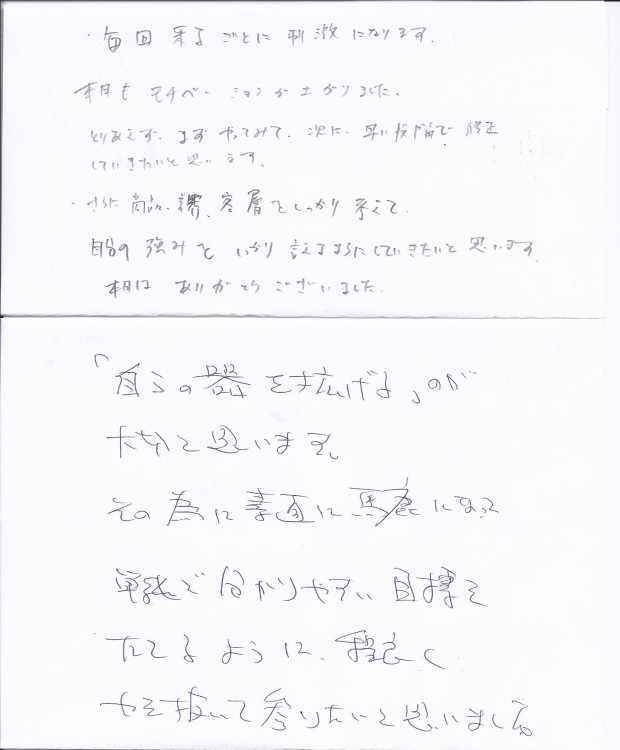 ・毎回来るごとに刺激になります。
本日もモチベーションが上がりました。
とりあえず、まずやってみて、次に、早い段階で修正
していきたいと思います。
・さらに商品、客層をしっかり考えて、
自分の強みをしっかり言えるようにしていきたいと思います。
本日はありがとうございました。
「自らの器を拡げる」のが
大切と思います。
その為に素直に馬鹿になって
単純で分かりやすい目標を
たてるように、程良く
やり抜いて参りたいと思いました。